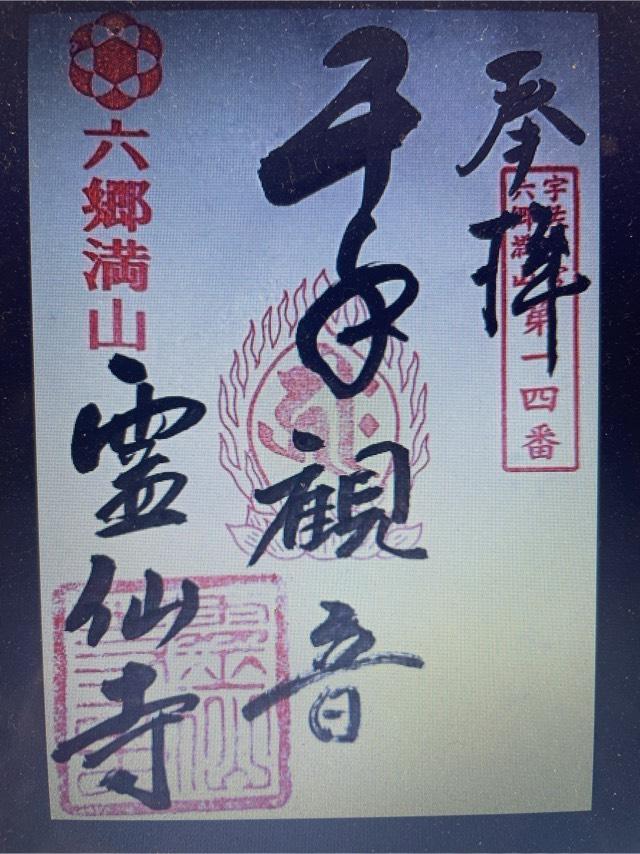 奉拝
宇佐
六郷満山第一四番
千手觀音
六郷満山
霊仙寺